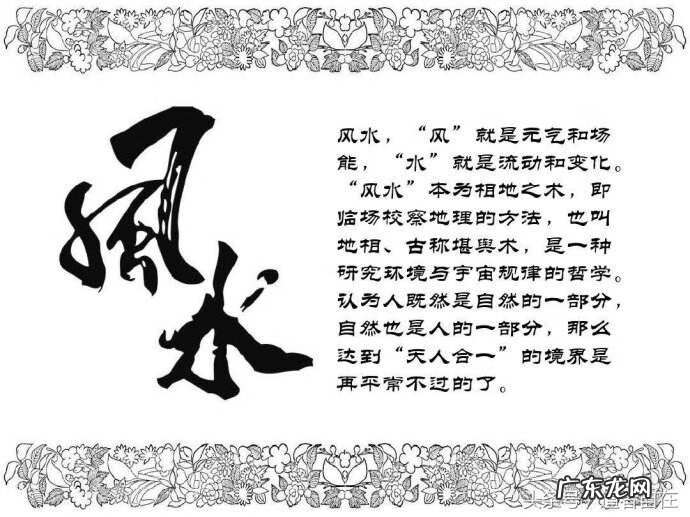 風水
风水，“风”就是元气和场
能，“水”就是流动和变化。
“风水”本为相地之术，即
临场校察地理的方法，也叫
地相、古称堪舆术，是一种
研究环境与宇宙规律的哲学。
认为人既然是自然的一部分，
自然也是人的一部分，那么
达到“天人合一”的境界是
再平常不过的了。
广东龙网